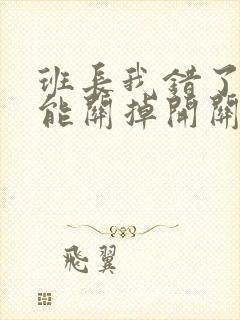 班長我錯了
能關掉開關
飛翼